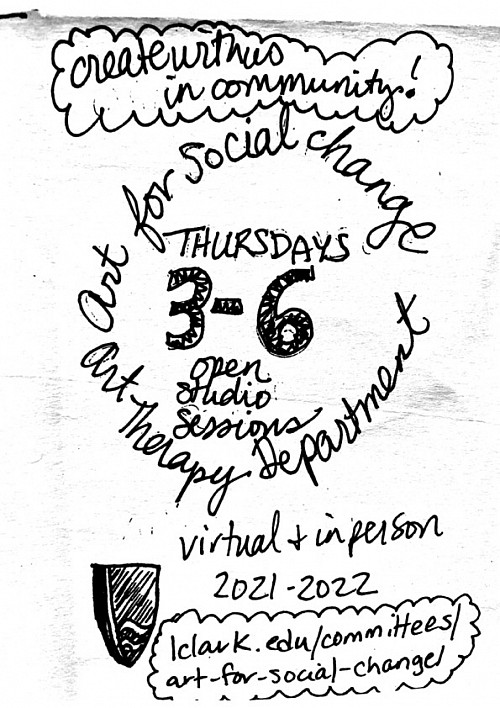 create with us
in community!
Art for social change
THURSDAYS
3-6
open
studio
sessions
Art Therapy Department
virtual + in person
2021-2022
lclark.edu/committees/
art-for-social-change/